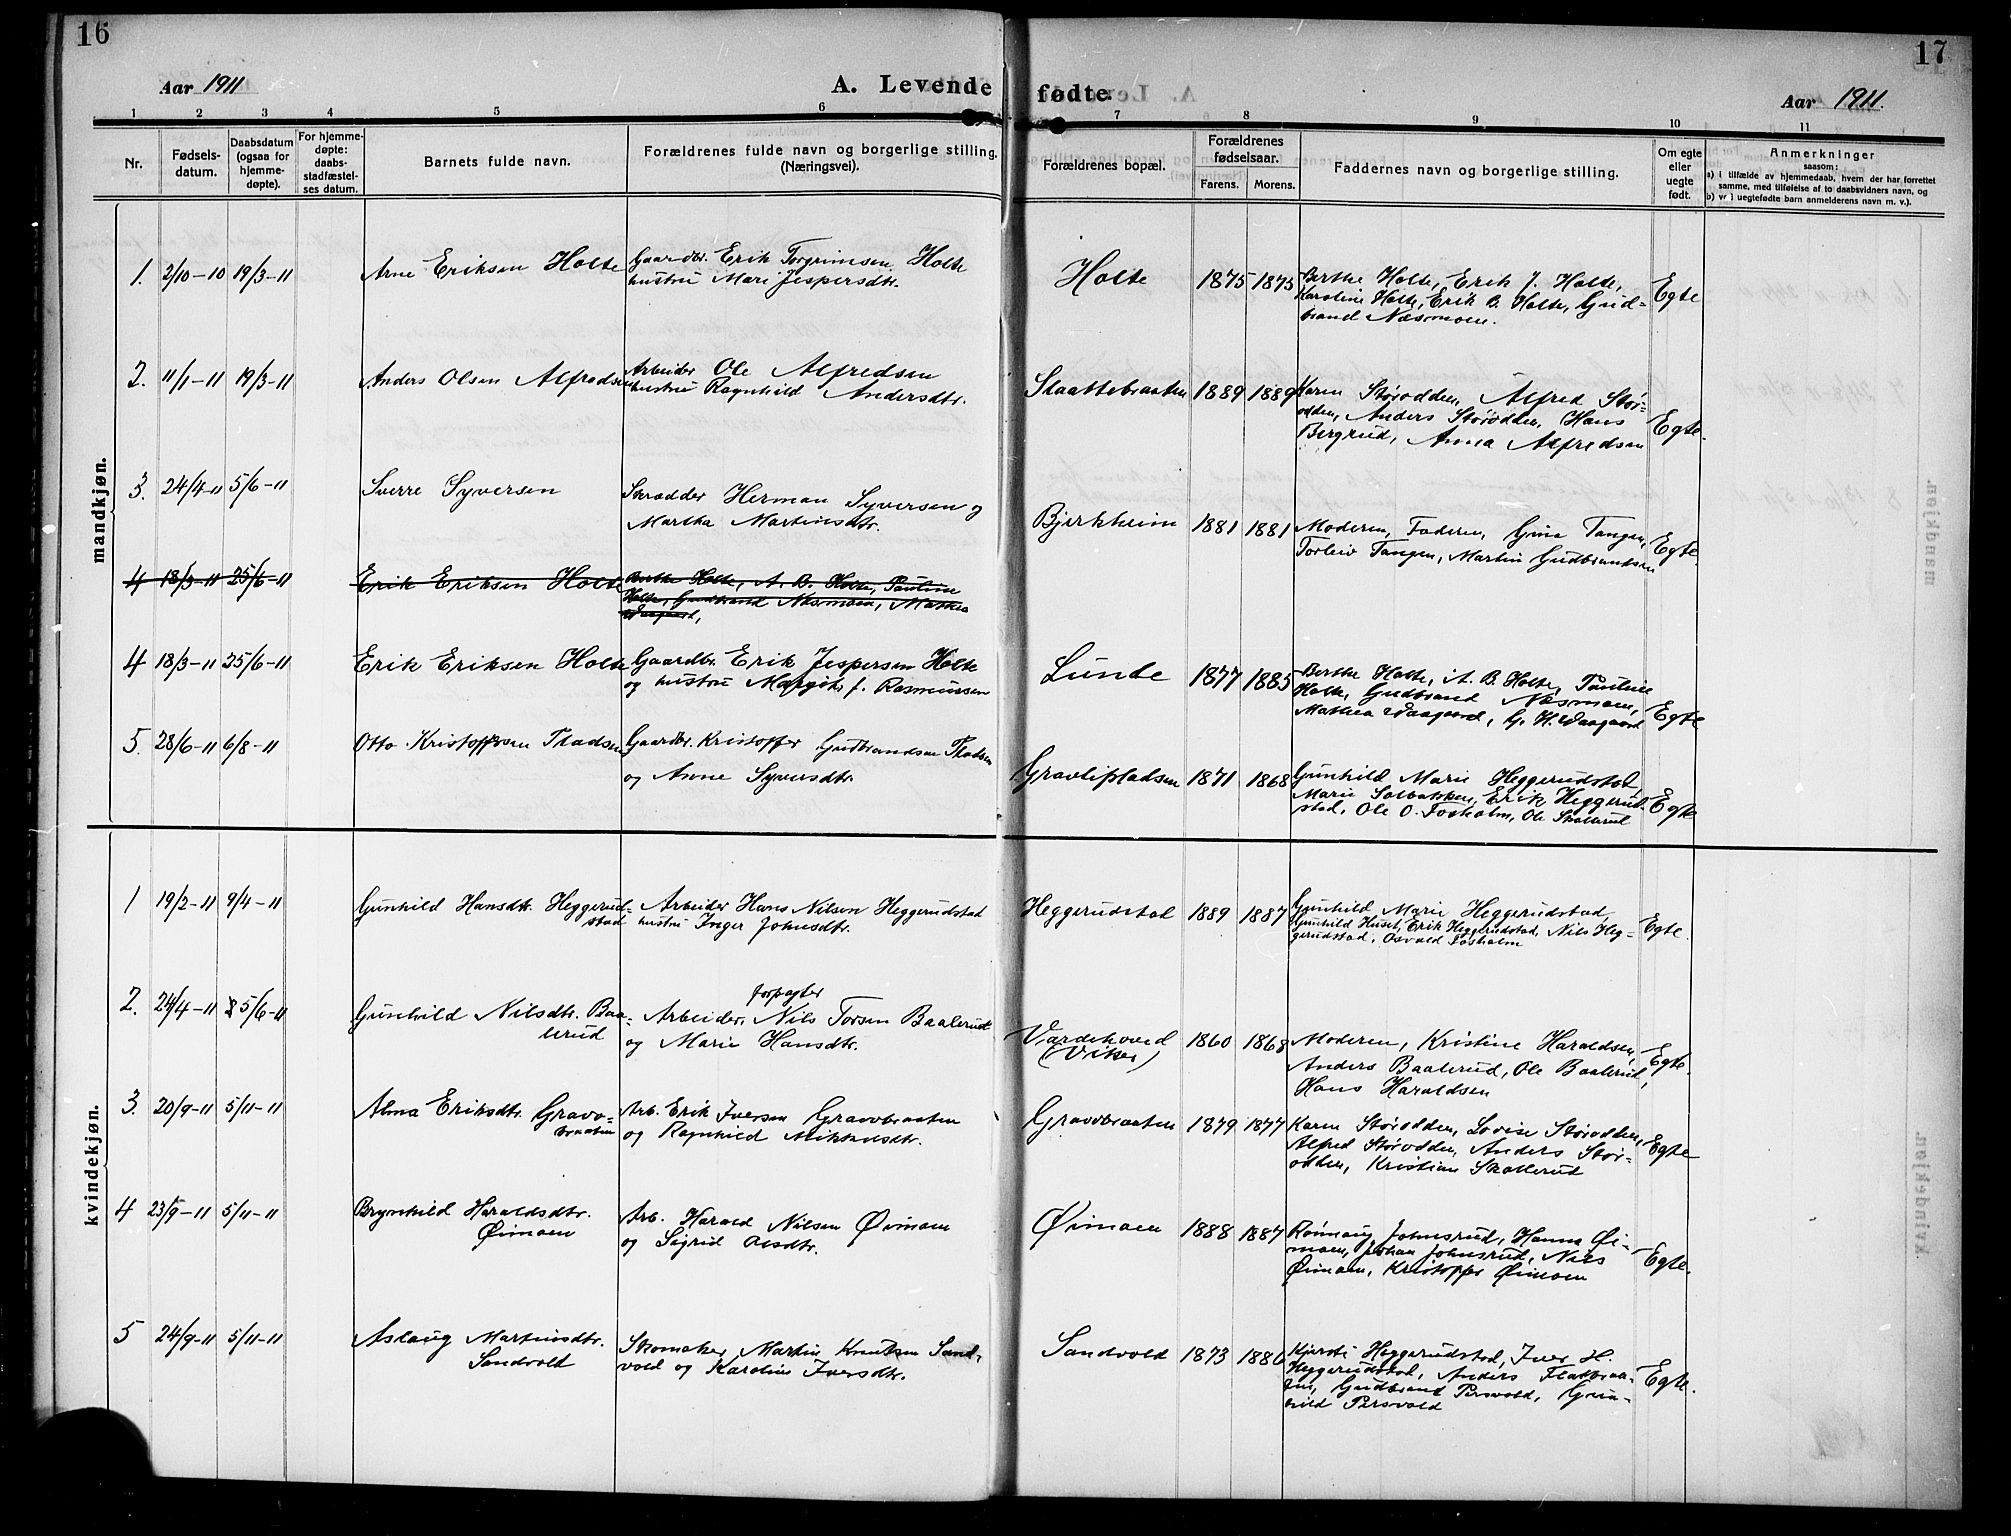 16
Aar 1911
A. Levende
1 2 3 4 5 6
Nr.
Fødsels-
datum.
Daabsdatum
(ogsaa for
hjemme-
døpte).
For hjemme-
døpte:
daabs-
stadfæstel-
ses datum.
Barnets fulde navn.
Forældrenes fulde navn og borgerlige stilling.
(Næringsvei).
mandkjøn.
1. 2/10-10 19/3-11 Arne Eriksen Holte Gaardbr. Erik Torgrimsen Holte
hustru Mari Jespersdtr.
2. 11/1-11 19/3-11 Anders Olsen Alfredsen Arbeider Ole Alfredsen
hustru Ragnhild Andersdtr.
3. 24/4-11 5/6-11 Sverre Syversen Skrædder Herman Syversen og
Martha Martinsdtr.
4 18/3-11 25/6-11 Erik Eriksen Holte Berthe Holte, A. B. Holte, Pauline
Holte, Gudbrand Næsmoen, Mathea
4 18/3-11 25/6-11 Erik Eriksen Holte Gaardbr. Erik Jespersen Holte
og hustru Margit f. Rasmussen
5. 28/6-11 6/8-11 Otto Kristoffersen Pladsen Gaardbr. Kristoffer Gudbrandsen Pladsen
og Anne Syversdtr.
kvindekjøn.
1 19/2-11 9/4-11 Gunhild Hansdtr. Heggerud- Arbeider Hans Nilsen Heggerudstad
stad hustru Inger Johnsdtr.
forpagter
2. 24/4-11 5/6-11 Gunhild Nilsdtr. Baa- Arbeider, Nils Torsen Baalerud
lerud og Marie Hansdtr.
3. 20/9-11 5/11-11 Alma Eriksdtr. Gravv- Arb. Erik Iversen Gravvbraaten
braaten og Ragnhild Mikkelsdtr.
4 23/9-11 5/11-11 Brynhild Haraldsdtr. Arb. Harald Nilsen Øimoen
Øimoen og Sigrid Olsdtr.
5 24/9-11 5/11-11 Aslaug Martinsdtr. Skomaker Martin Knutsen Sand-
Sandvold vold og Karoline Iversdtr.
17
fødte.
Aar 1911.
7 8 9 10 11
Forældrenes bopæl.
Forældrenes
fødselsaar.
Farens. Morens.
Faddernes navn og borgerlige stilling.
Om egte
eller
uegte
født.
Anmerkninger
saasom:
a) i tilfælde av hjemmedaab, hvem der har forrettet
samme, med tilføielse af to daabsvidners navn, og
b) ved uegtefødte barn anmelderens navn m. v.).
Holte 1875 1875 Berthe Holte, Erik J. Holte, Egte
Karoline Holte, Erik B. Holte, Gud-
brand Næsmoen.
Slaattebraaten 1889 1889 Karen Størodden, Alfred Stør-
odden, Anders Størodden, Hans Egte.
Bergrud, Anna Alfredsen
Bjerkheim 1881 1881 Moderen, Faderen, Gina Tangen, Egte.
Torleiv Tangen, Martin Gudbrandsen
Lunde 1877 1885 Berthe Holte, A. B. Holte, Pauline
Holte, Gudbrand Næsmoen,
Mathea Waagaard, G. H. Waagaard Egte
Gravlipladsen 1871 1868 Gunhild Marie Heggerudstad,
Marie Solbakken, Erik Heggerud- Egte
stad, Ole O. Fosholm, Ole Skollerud
Heggerudstad 1889 1887 Gunhild Marie Heggerudstad,
Gunhild Huset, Erik Heggerudstad, Nils Heg- Egte.
gerudstad, Osvald Fosholm
Værdehoved 1860 1868 Moderen, Kristine Haraldsen, Egte.
(Viker) Anders Baalerud, Ole Baalerud,
Hans Haraldsen
Gravvbraaten 1879 1877 Karen Størodden, Lovise Størodden,
Alfred Størodden, Anders Stør- Egte
odden, Kristian Skollerud
Øimoen 1888 1887 Rønnaug Johnsrud, Hanna Øi-
moen, Johan Johnsrud, Nils Egte.
Øimoen, Kristoffer Øimoen
Sandvold 1873 1886 Kjersti Heggerudstad, Iver H.
Heggerudstad, Anders Flatbraa- Egte.
ten, Gudbrand Persvold, Gun-
hild Persvold